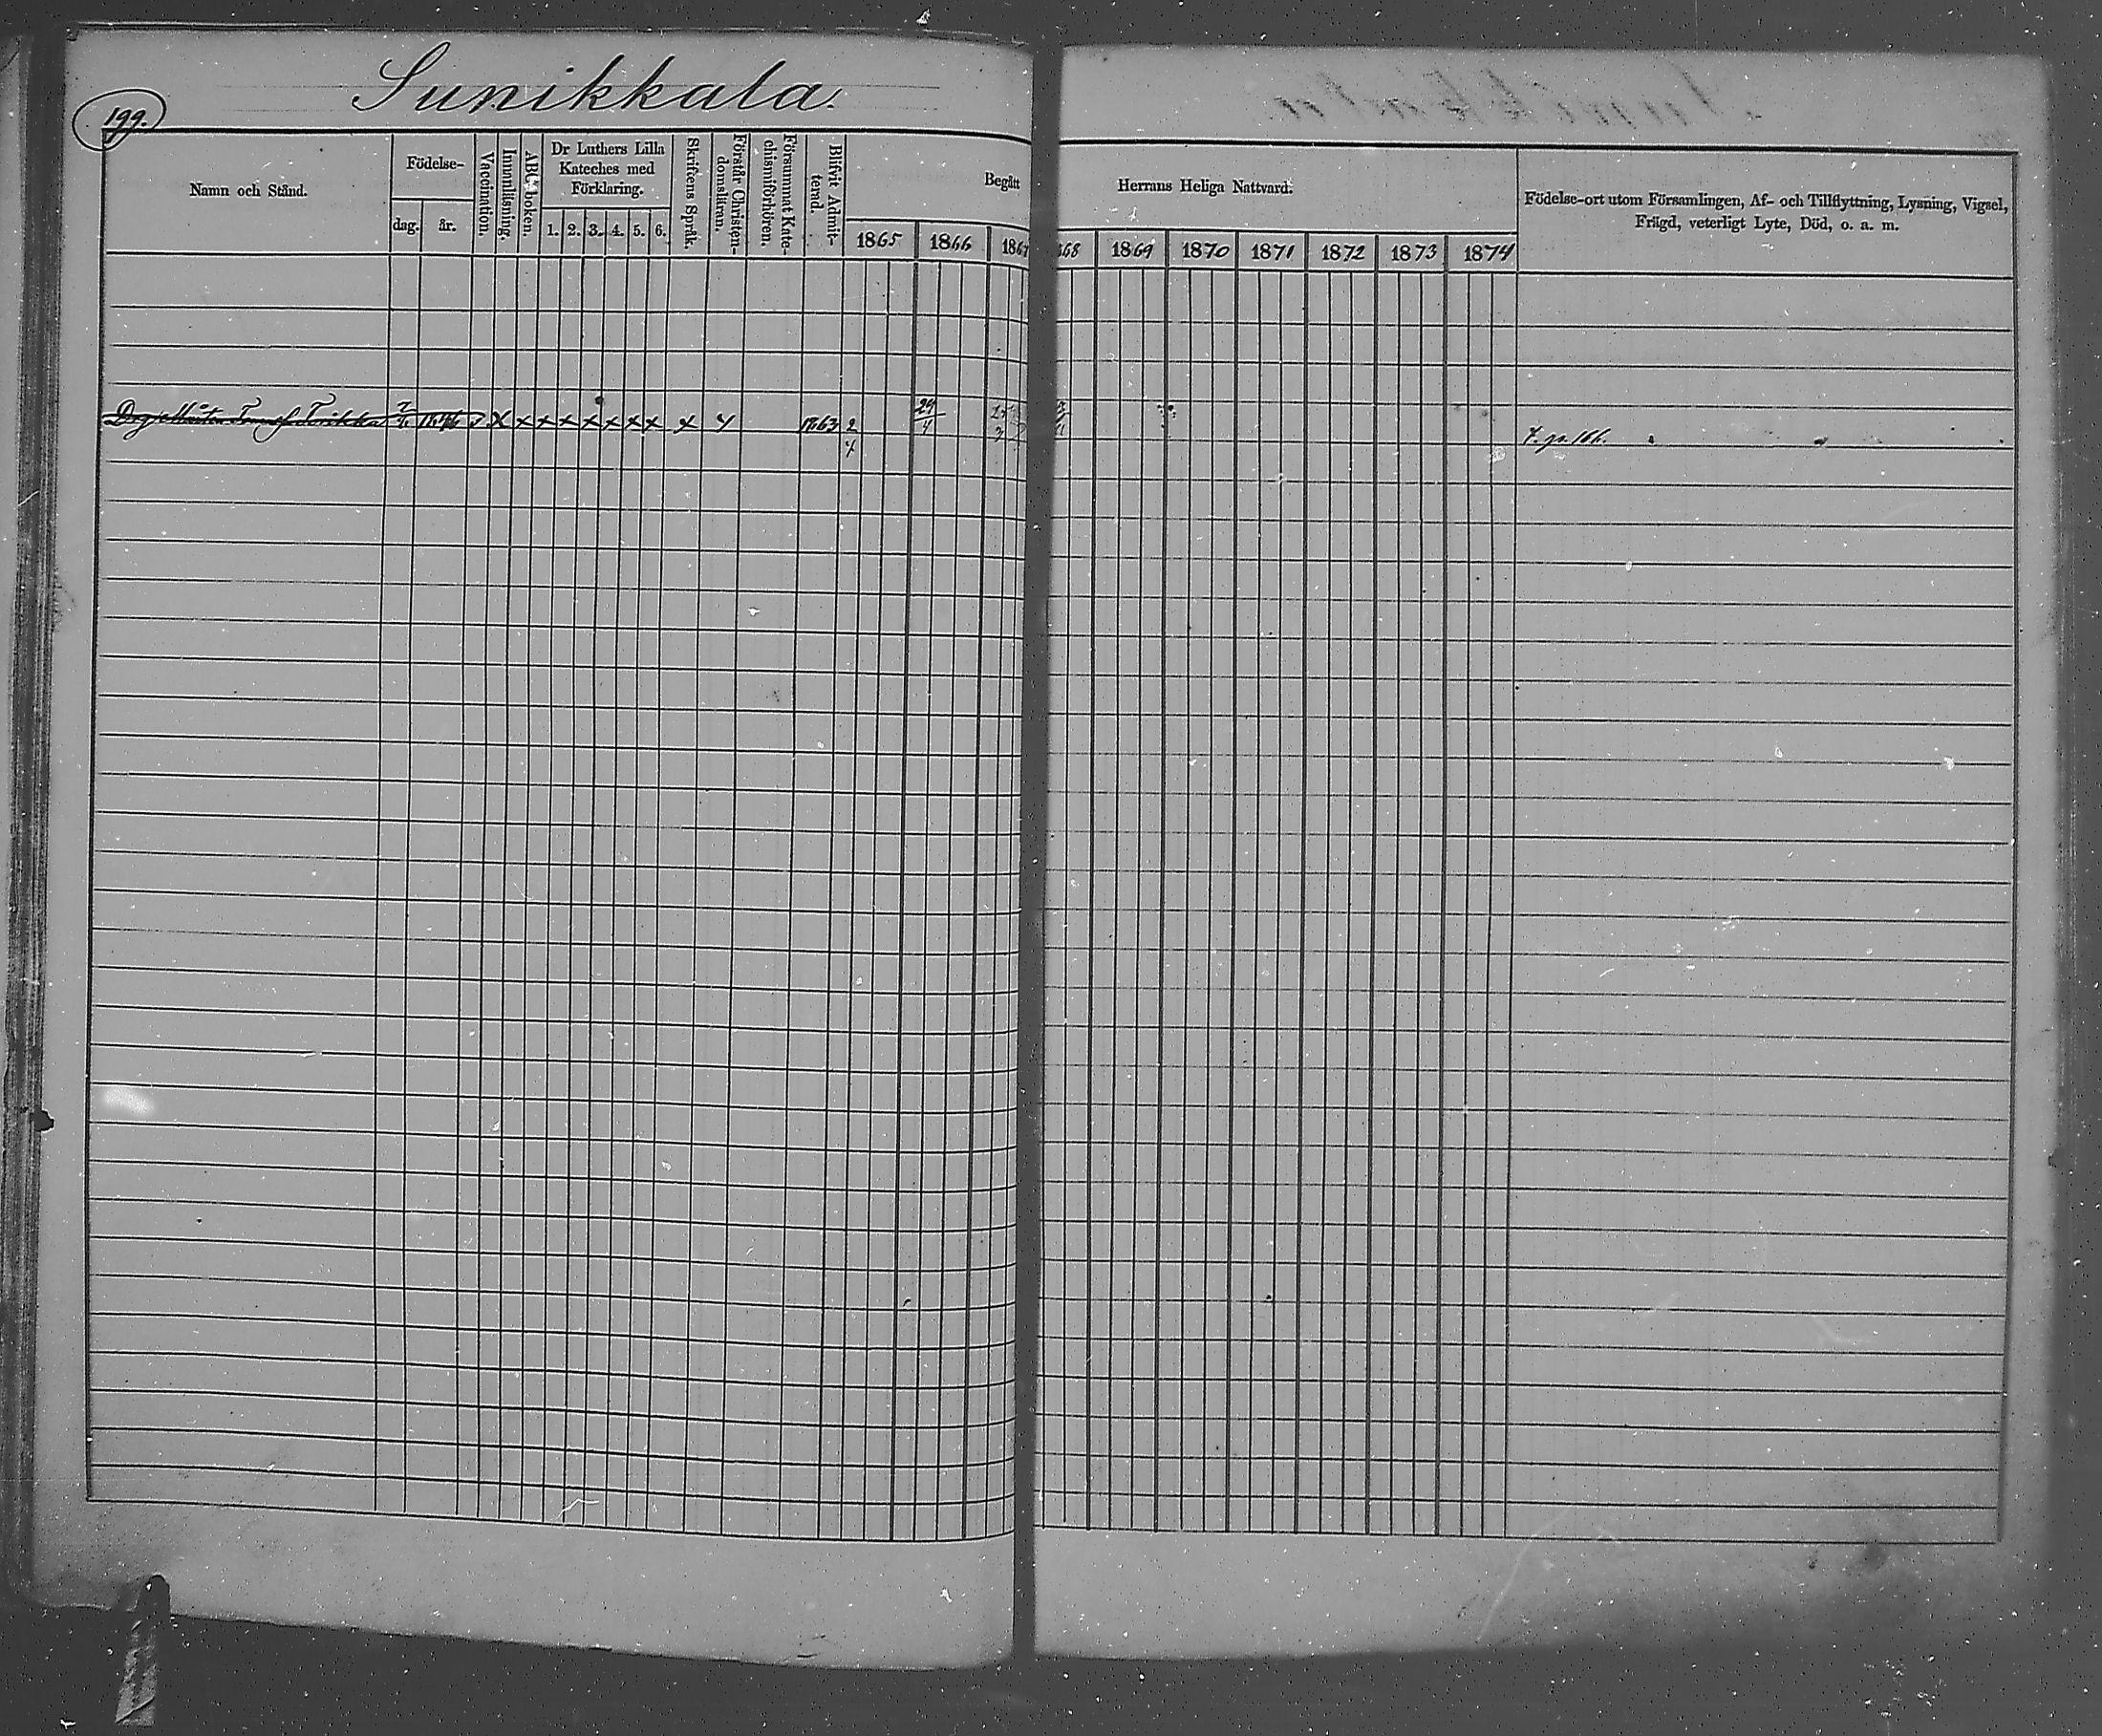 Sunikkala.
199.
Namn och Stånd.
Födelse-
dag.
år.
Vaccination.
Innanläsning.
ABC-boken.
Dr Luthers Lilla
Kateches med
Förklaring.
1. 2. 3. 4. 5. 6.
Skriftens Språk.
Förstår Christen-
domsläran.
Försummat Kate-
chismiförhören.
Blifvit Admit-
terad.
Begått
Herrans Heliga Nattvard.
1865 1866 1867 868 1869 1870 1871 1872 1873 1874
Födelse-ort utom Församlingen, Af- och Tillflyttning, Lysning, Vigsel,
Frägd, veterligt Lyte, Död, o. a. m.
x x x x x x x x x 1863 2 24
4